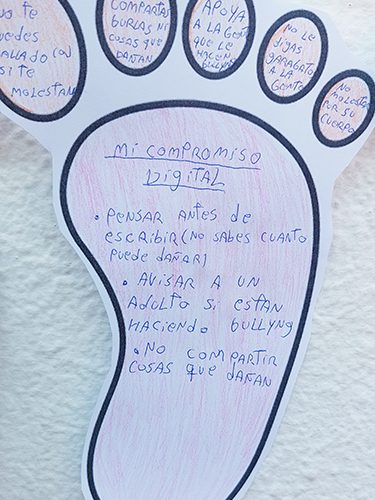 te
puedes
callado (o)
si te
molestan
compartas
burlas ni
cosas que
dañan
Apoya
a la gente
que le
hacen
bullyng
No le
digas
garabatos
a la
gente
No
molestar
por su
cuerpo
Mi compromiso
Digital
• Pensar antes de
escribir (no sabes cuanto
puede dañar)
• Avisar a un
adulto si estan
haciendo bullyng
• No compartir
cosas que dañan